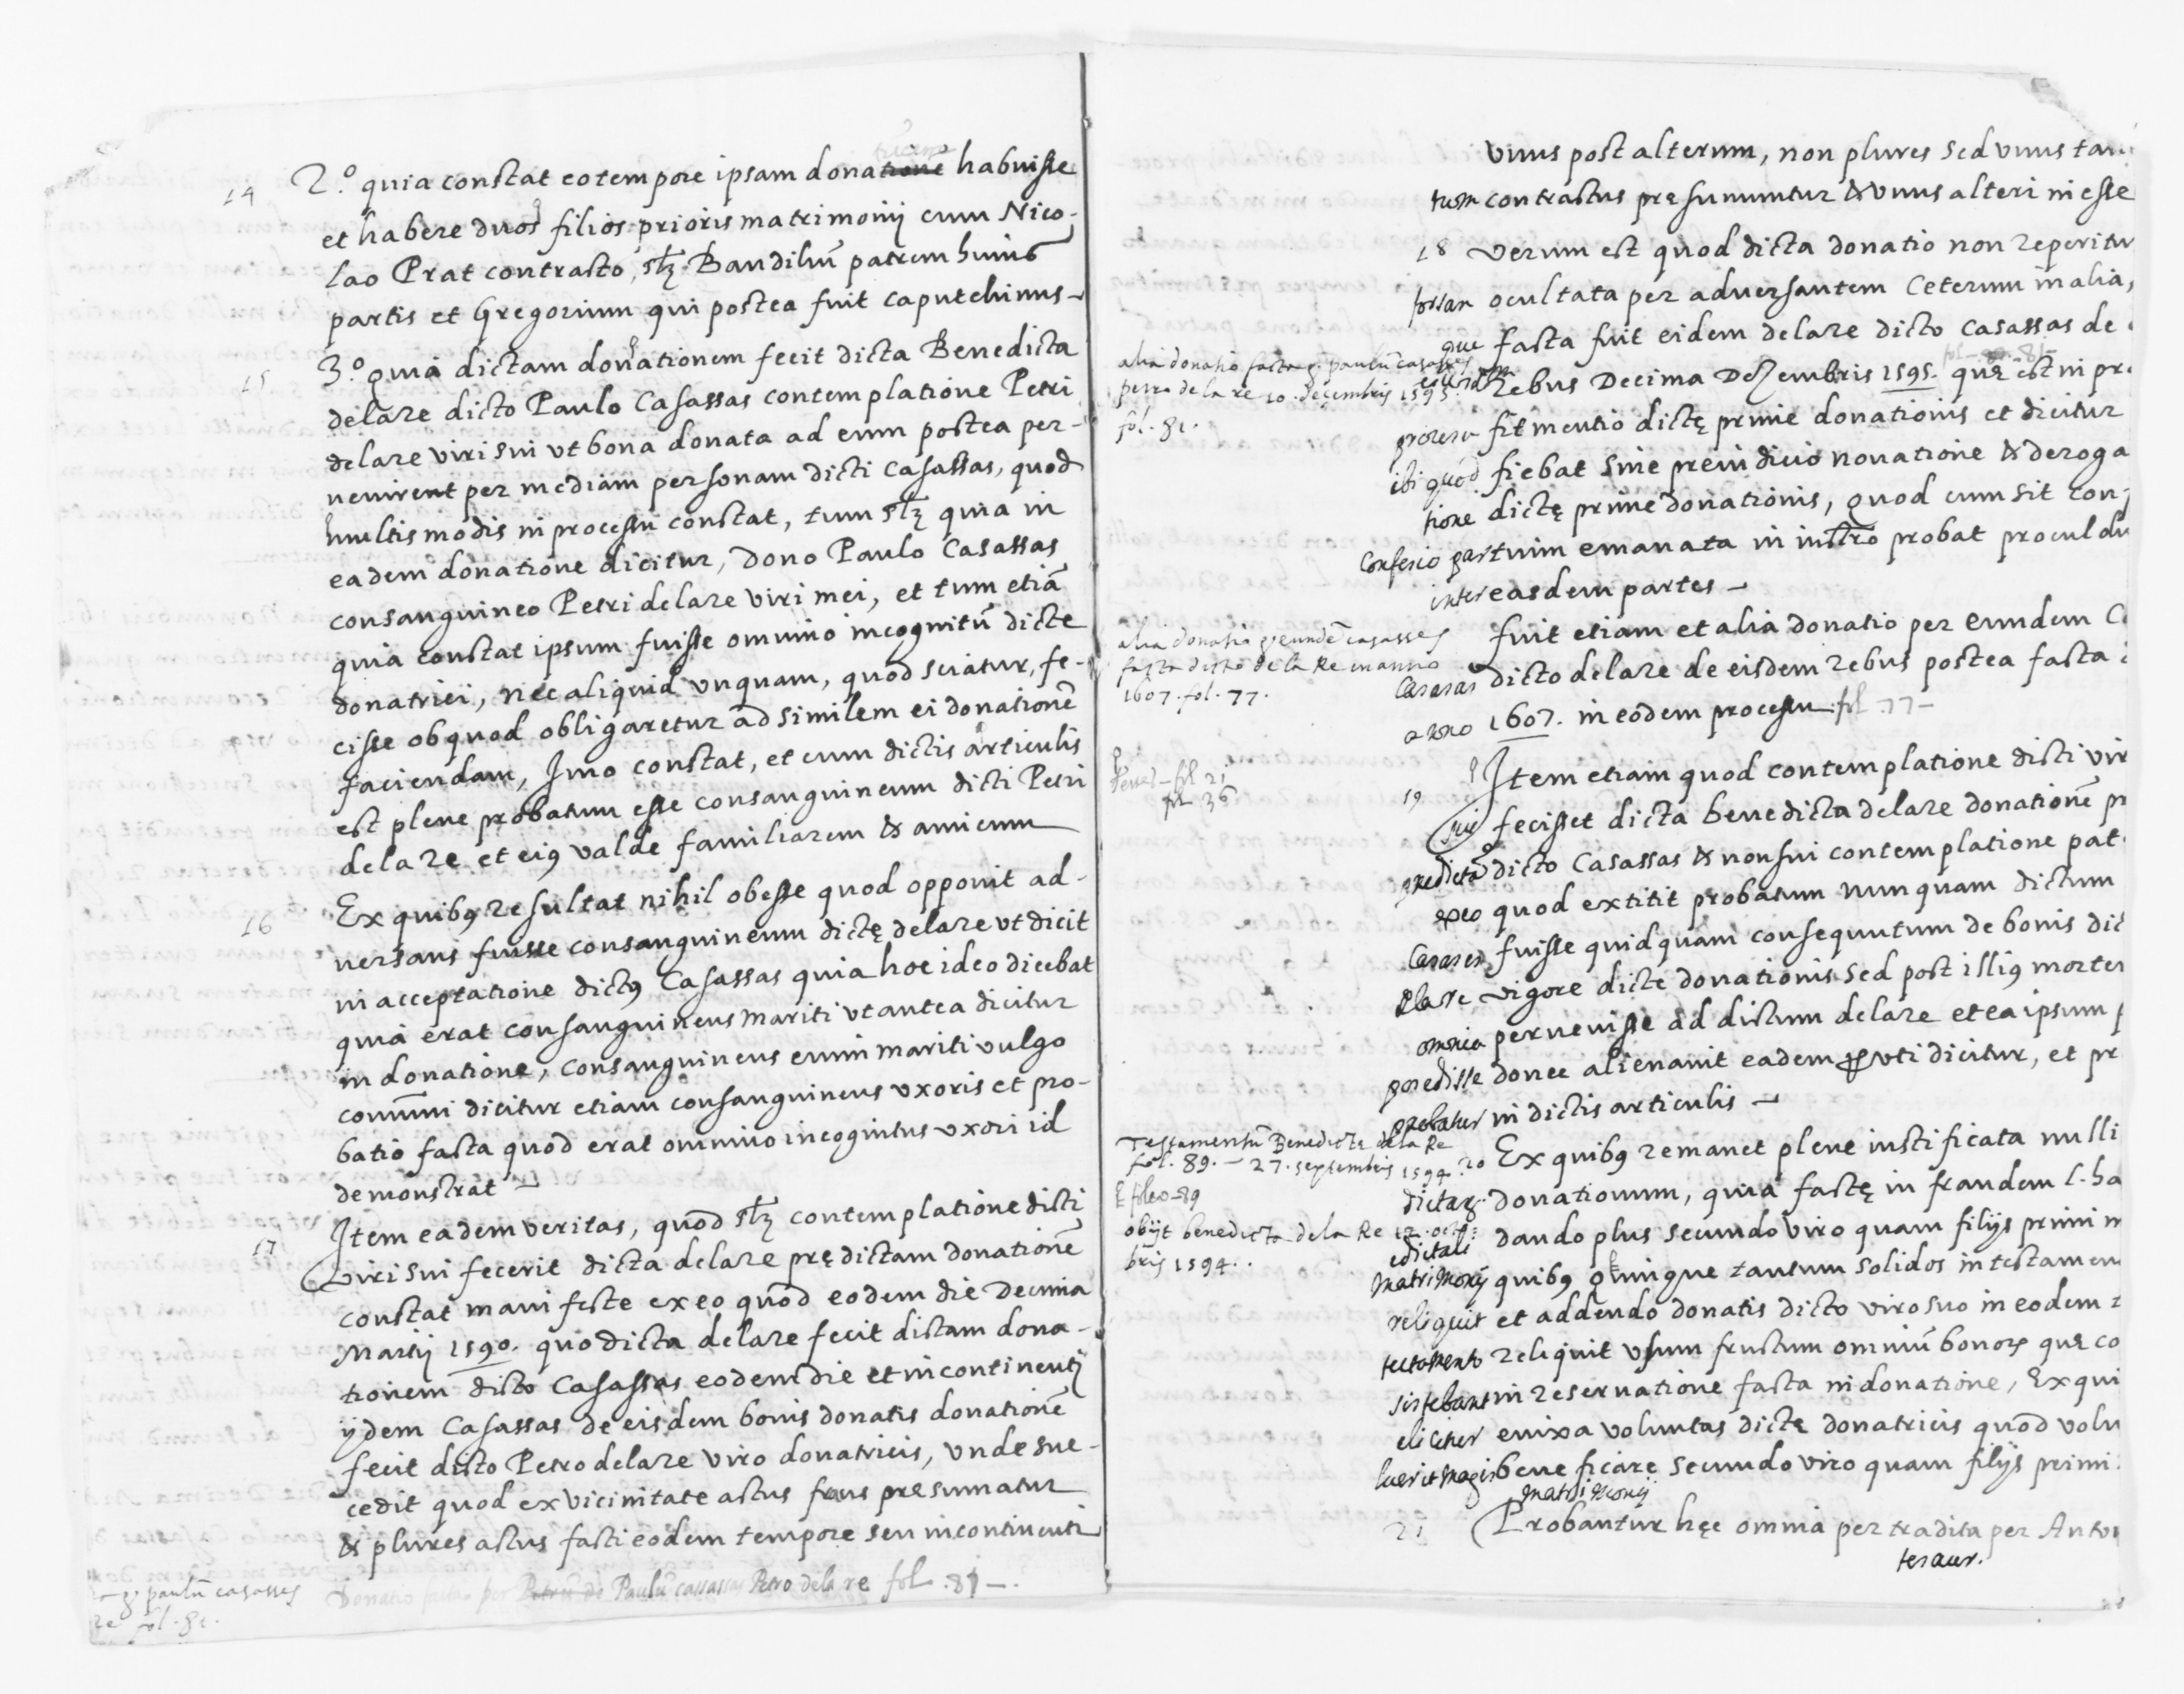 14 2.º quia constat eo tempore ipsam donatricem habuisse
et habere duos filios prioris matrimonij cum Nico-
lao Prat contracto, slz Baudiliũ patrem huius
partis et Gregorium qui postea fuit caputchinus-
15 3.º quia dictam donationem fecit dicta Benedicta
delare dicto Paulo Casassas contemplatione Petri
delare viri sui vt bona donata ad eum postea per-
uenirent per mediam personam dicti Casassas, quod
multis modis in processu constat, tum slz quia in
eadem donatione dicitur, Dono Paulo Casassas
consanguineo Petri delare viri mei, et tum etiã
quia constat ipsum fuisse omnino incognitũ dicte
donatrici, nec aliquid vnquam, quod sciatur, fe-
cisse ob quod obligaretur ad similem ei donationẽ
faciendam, Imo constat, et cum dictis articulis
est plene probatum esse consanguineum dicti Petri
delare et eiꝰ valde familiarem & amicum
16 Ex quibꝰ resultat nihil obesse quod opponit ad-
uersans fuisse consanguineum dictę delare vt dicit
in acceptatione dictꝰ Casassas quia hoc ideo dicebat
quia erat consanguineus mariti vt antea dicitur
in donatione, consanguineus enim mariti vulgo
comuni dicitur etiam consanguineus vxoris et pro-
batio facta quod erat omnino incognitus vxori id
demonstrat -
17 Item eadem veritas, quod slz contemplatione dicti
viri sui fecerit dicta delare prędictam donationẽ
constat manifeste ex eo quod eodem die Decima
Martij 1590. quo dicta delare fecit dictam dona-
tionem dicto Casassas eodem die et incontinentj
ijdem Casassas de eisdem bonis donatis donationẽ
fecit dicto Petro delare viro donatricis, vnde suc-
cedit quod ex vicinitate actus fraus presumatur
& plures actus facti eodem tempore seu incontinenti
paulũ casasses
fol. 81.
Donatio facta per Petrũ de Paulũ cassassas Petro delare fol. 81 -.
vnus post alterum, non plures sed vnus tan
tum contractus pręsumuntur & vnus alteri inesse
18 Verum est quod dicta donatio non reperitur
forsan ocultata per aduersantem Ceterum in alia,
que facta fuit eidem delare dicto Casassas de
rebus Decima Dezembris 1595. fol. 81 quę est in pr
alia donatio facta p paulũ casasses
petro de la re 10. decembris 1595.
fol. 81.
processu fit mentio dictę prime donationis et dicitur
ibi quod fiebat sine preiudicio nouatione & deroga
tione dictę prime donationis, quod cum sit con-
fesio partium emanata in instro probat procul du
inter easdem partes -
fuit etiam et alia donatio per eundem C
alia donatio p eundẽ casasses
facta dicto de la Re in anno
1607. fol. 77.
Casasas dicto delare de eisdem rebus postea facta
anno 1607. in eodem processu fol 77 -
fol 21
fol 36
19 Item etiam quod contemplatione dicti vir
sui fecisset dicta benedicta delare donationẽ
predictã dicto Casassas & non sui contemplatione pat
ex eo quod extitit probatum nunquam dictum
Casases fuisse quidquam consequutum de bonis dic
delare vigore dicte donationis sed post illiꝰ mortem
omnia peruenisse ad dictum delare et ea ipsum
posedisse donec alienauit eadem prouti dicitur, et pr
probatur in dictis articulis -
Testamentũ Benedicte de la Re
fol. 89. - 27. septembris 1594
folio 89
obijt benedicta de la Re 12. octo-
bris 1594..
20 Ex quibꝰ remanet plene iustificata nulli
dictar. donationum, quia factę in fraudem l. ha
edictali dando plus secundo viro quam filijs primi m
matrimonij quibꝰ quinque tantum solidos in testamen
reliquit et addendo donatis dicto viro suo in eodem
testamento reliquit vsum fructum omniũ bonorꝫ quę co
sistebant in reseruatione facta in donatione, Ex qui
elicitur enixa voluntas dictę donatricis quod volu
luerit magis beneficare secundo viro quam filijs primi
matrimonij
21 Probantur hęc omnia per tradita per Anton
tesaur.